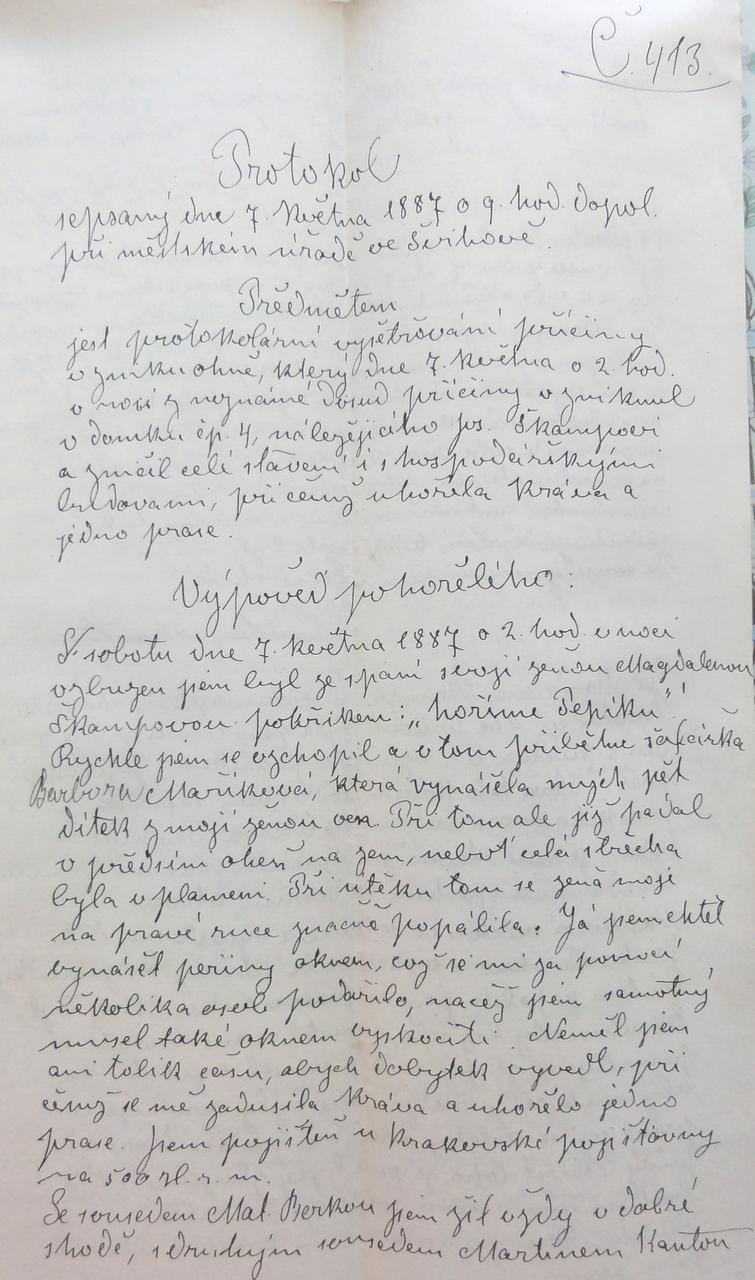 Č. 413.
Protokol
sepsaný dne 7. května 1887 o 9. hod. dopol.
při městském úřadě ve Švihově.
Předmětem
jest protokolární vyšetřování příčiny
vzniku ohně, který dne 7. května o 2. hod.
v noci z neznámé dosud příčiny vzniknul
v domku čp. 4, náležejícího Jos. Škampovi
a zničil celé stavení i s hospodářskými
budovami, při čemž uhořela kráva a
jedno prase.
Výpověď pohořelého:
V sobotu dne 7. května 1887 o 2. hod. v noci
vzbuzen jsem byl ze spaní svojí ženou Magdalenou
Škampovou pokřikem: „hoříme Pepíku"!
Rychle jsem se vzchopil a v tom přiběhne šafářka
Barbora Maříková, která vynášela mých pět
dítek z mojí ženou ven. Při tom ale již padal
v předsíni oheň na zem, neboť celá střecha
byla v plameni. Při útěku tom se žena moje
na pravé ruce značně popálila. Já jsem chtěl
vynášet peřiny oknem, což se mi za pomoci
několika osob podařilo, načež jsem samotný
musel také oknem vyskočiti. Neměl jsem
ani tolik času, abych dobytek vyvedl, při
čemž se mě zadusila kráva a uhořelo jedno
prase. Jsem pojištěn u Krakovské pojišťovny
na 500 zl. r. m.
Se sousedem Mat. Berkou jsem žil vždy v dobré
shodě, s druhým sousedem Martinem Kantou